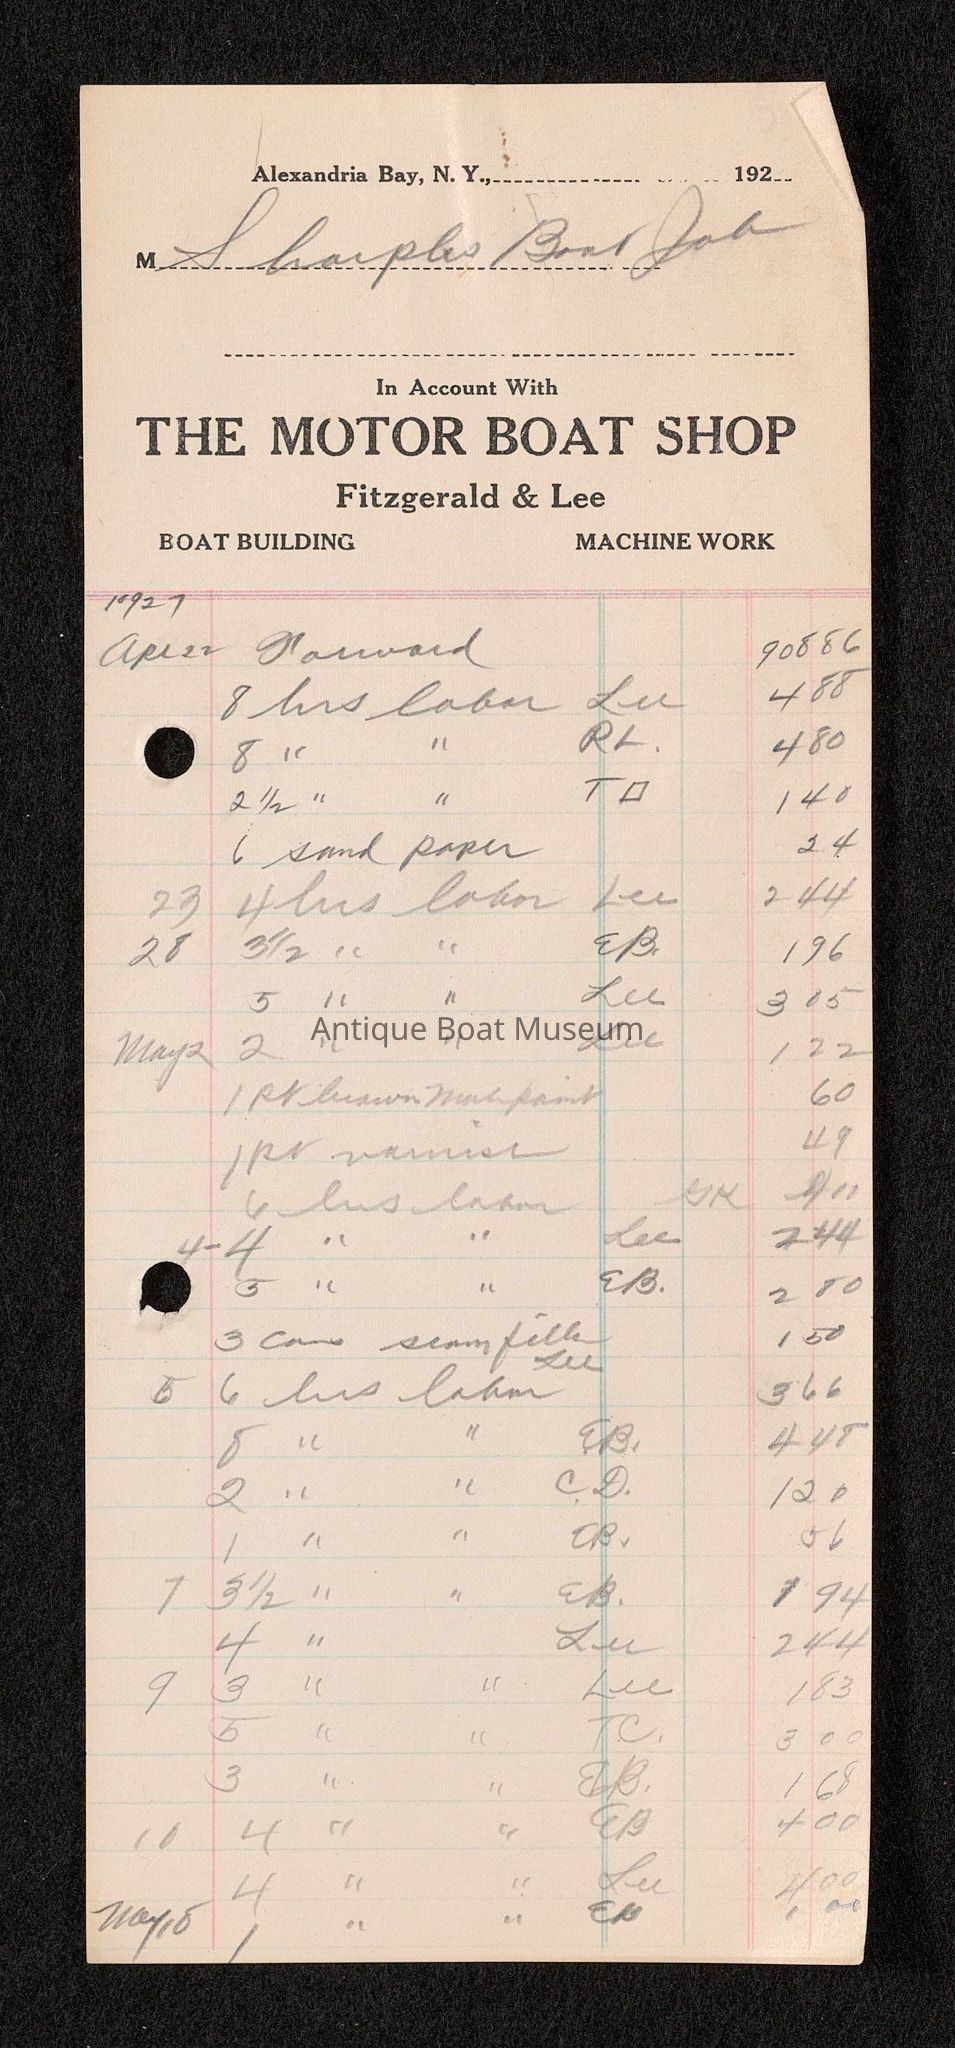 Alexandria Bay, N. Y., 192
M Sharples Boat Job
In Account With
THE MOTOR BOAT SHOP
Fitzgerald & Lee
BOAT BUILDING MACHINE WORK
1927
Apr 22 Forward 908 86
8 hrs labor Lee 4 88
8 " " R L. 4 80
2 1/2 " " T 1 40
6 sand paper 24
23 4 hrs labor Lee 2 44
28 3 1/2 " " EB. 1 96
5 " " Lee 3 05
Antique Boat Museum
May 2 2 " " Lee 1 22
1 pt brown paint 60
1 pt varnish 49
6 hrs labor
4 - 4 " " Lee 2 44
5 " " EB. 2 80
3 seam 1 50
5 6 hrs labor Lee 3 66
8 " " EB. 4 48
2 " " C.D. 1 20
1 " " EB. 56
7 3 1/2 " " EB. 1 94
4 " Lee 2 44
9 3 " " Lee 1 83
5 " " TC. 3 00
3 " " EB. 1 68
10 4 " " EB 4 00
4 " " Lee 4 00
May 15 1 " "